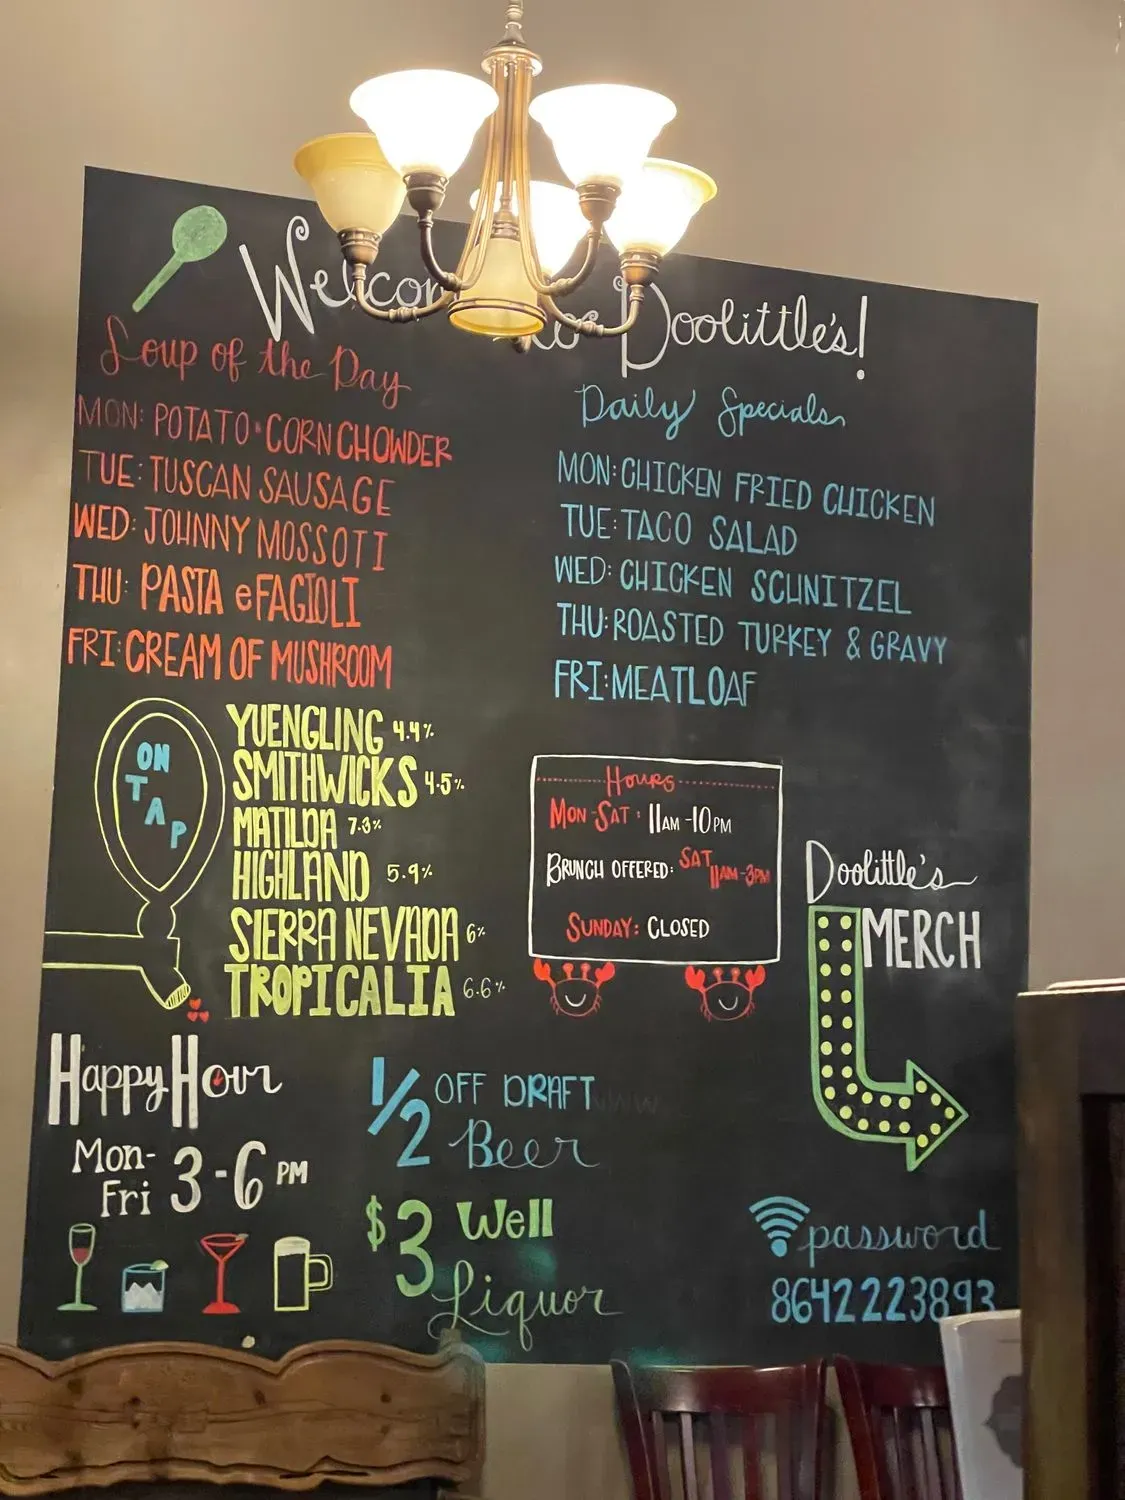 Welcome to Doolittle's!
Soup of the Day
MON: POTATO · CORN CHOWDER
TUE: TUSCAN SAUSAGE
WED: JOHNNY MOSSOTI
THU: PASTA e FAGIOLI
FRI: CREAM OF MUSHROOM
Daily Specials
MON: CHICKEN FRIED CHICKEN
TUE: TACO SALAD
WED: CHICKEN SCHNITZEL
THU: ROASTED TURKEY & GRAVY
FRI: MEATLOAF
ON
TAP
YUENGLING 4.4%
SMITHWICKS 4.5%
MATILDA 7.3%
HIGHLAND 5.9%
SIERRA NEVADA 6%
TROPICALIA 6.6%
Hours
MON-SAT: 11AM-10PM
BRUNCH OFFERED: SAT 11AM-3PM
SUNDAY: CLOSED
Doolittle's
MERCH
Happy Hour
Mon-
Fri 3-6 PM
1/2 OFF DRAFT
Beer
$3 Well
Liquor
password
8642223893